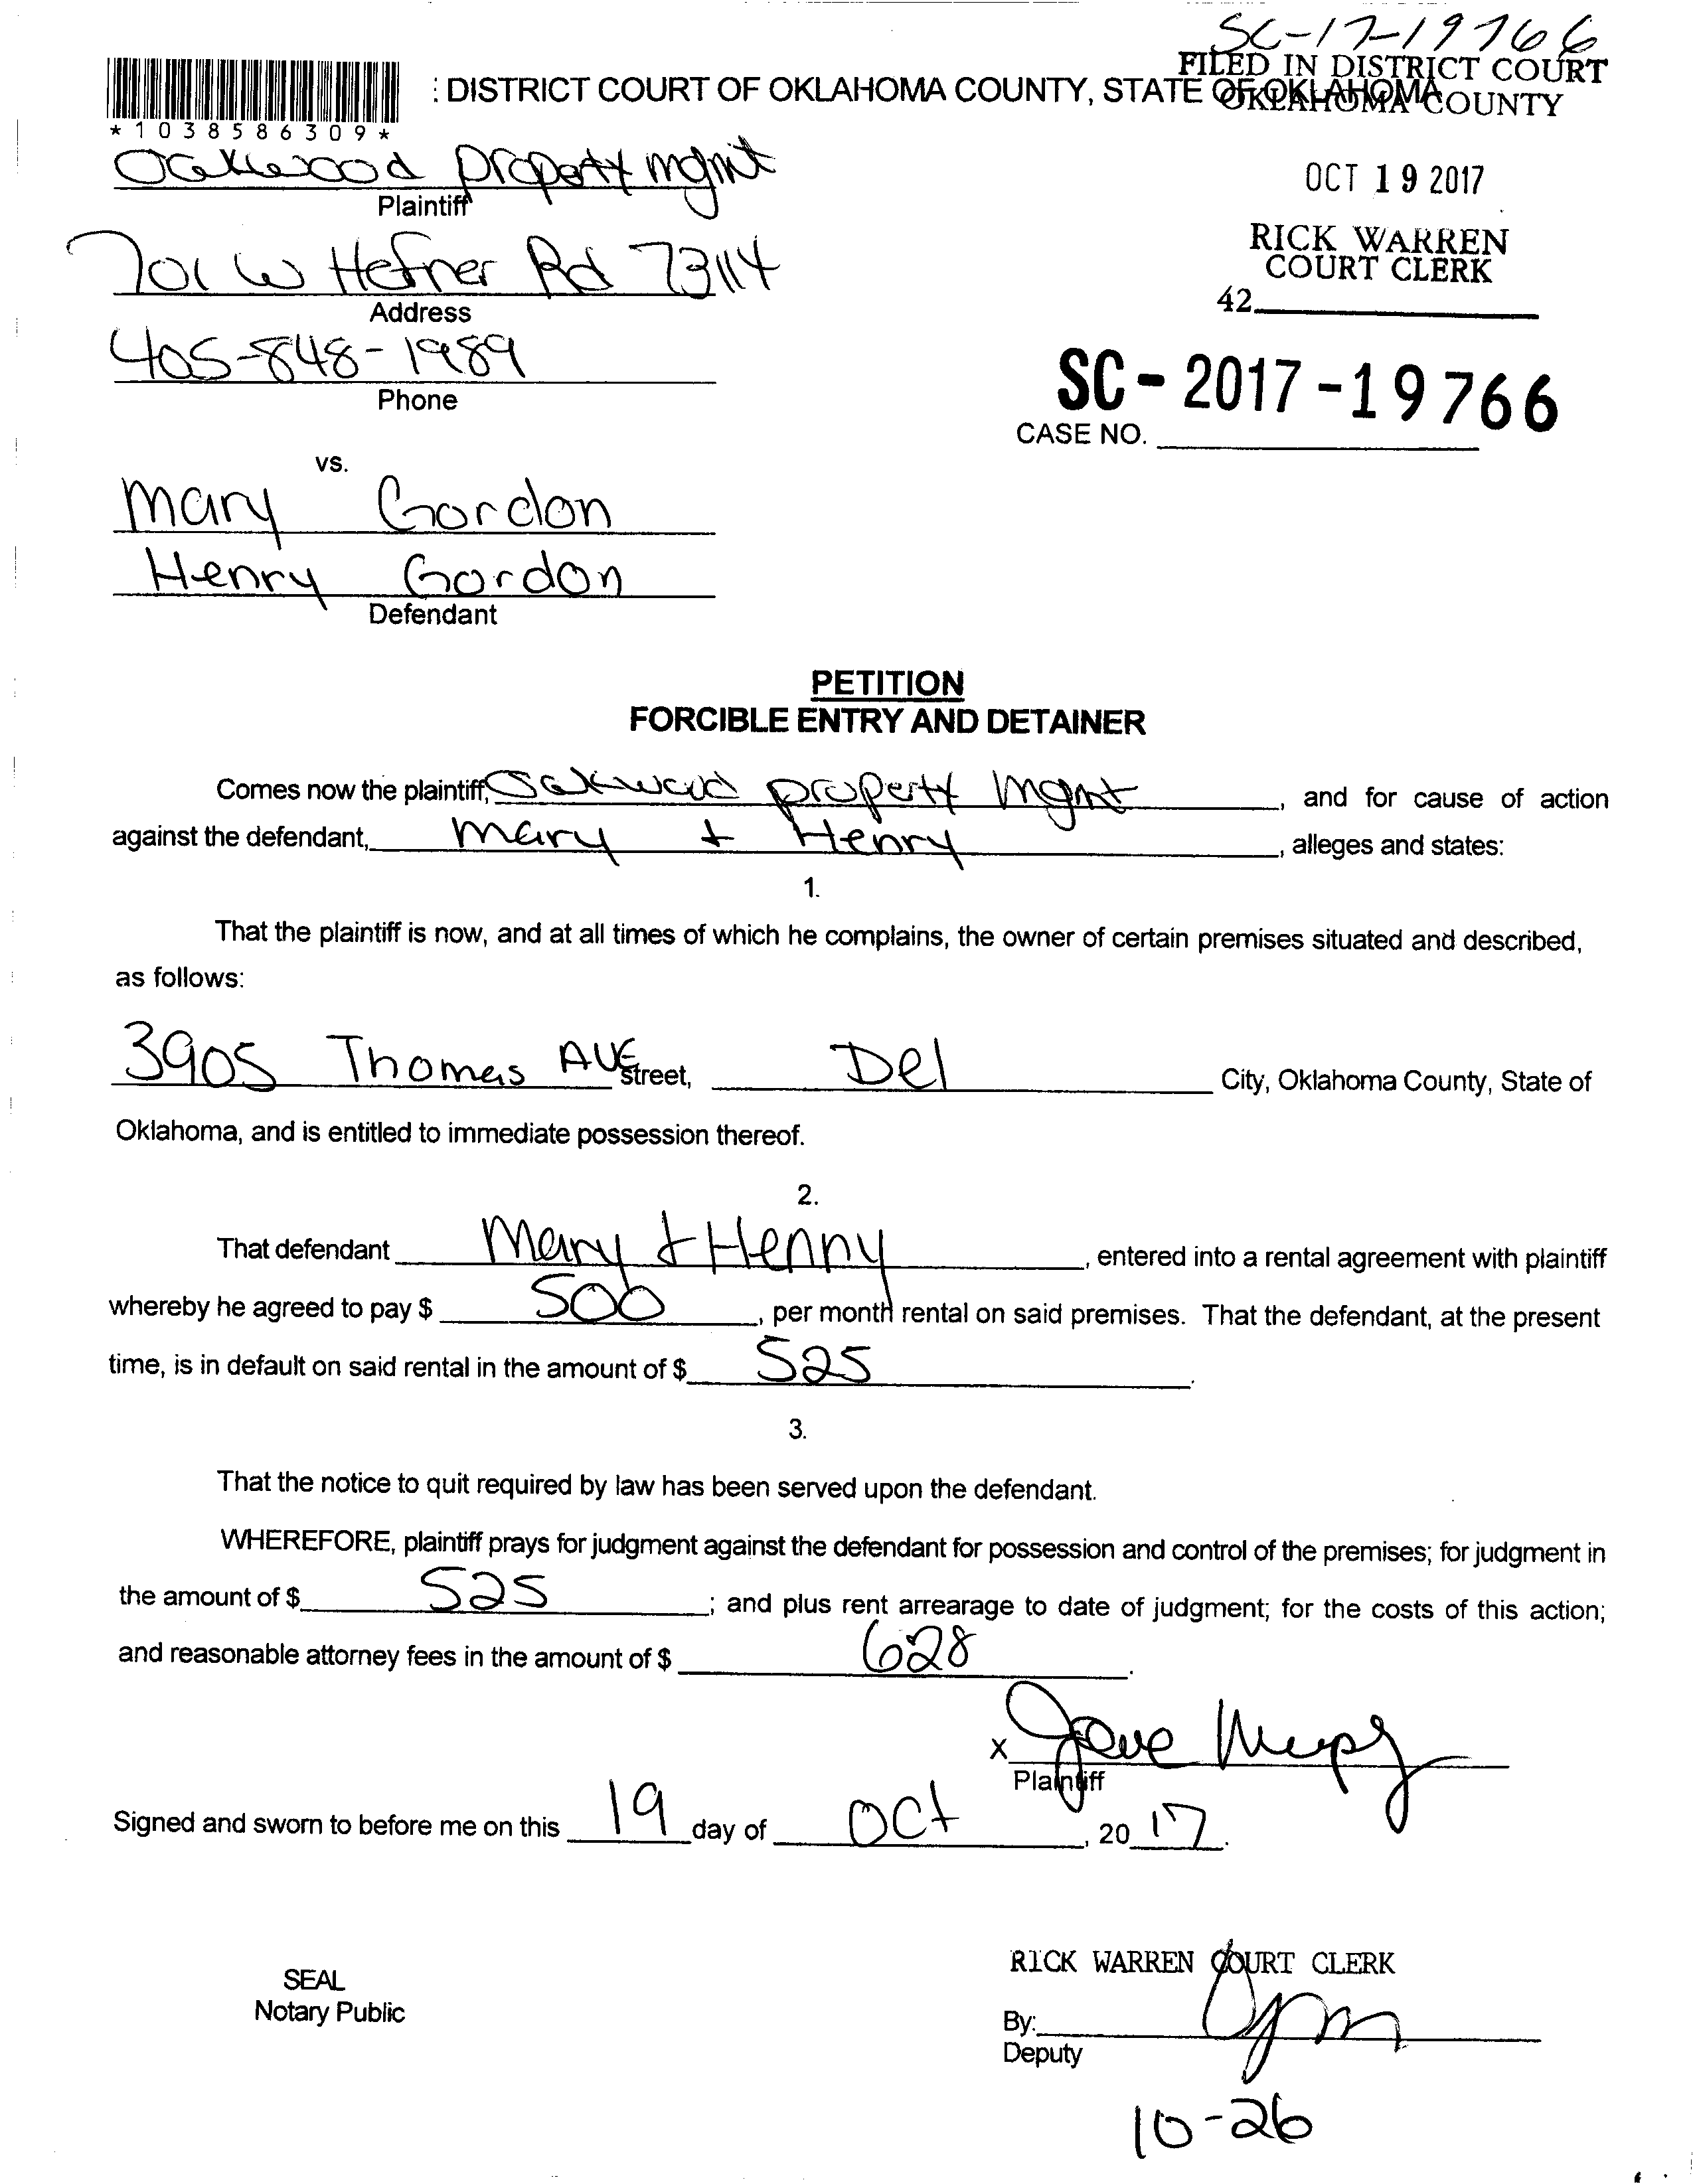 SC-17-19766
FILED IN DISTRICT COURT
: DISTRICT COURT OF OKLAHOMA COUNTY, STATE OF OKLAHOMA
OKLAHOMA COUNTY
*1038586309*
Oakwood property mgmt
Plaintiff
OCT 19 2017
701 W Hefner Rd 73114
Address
RICK WARREN
COURT CLERK
42
405-848-1989
Phone
SC-2017-19766
CASE NO.
vs.
Mary Gordon
Henry Gordon
Defendant
PETITION
FORCIBLE ENTRY AND DETAINER
Comes now the plaintiff, Oakwood property mgmt, and for cause of action
against the defendant, Mary + Henry, alleges and states:
1.
That the plaintiff is now, and at all times of which he complains, the owner of certain premises situated and described,
as follows:
3905 Thomas AVE Street, Del City, Oklahoma County, State of
Oklahoma, and is entitled to immediate possession thereof.
2.
That defendant Mary + Henry, entered into a rental agreement with plaintiff
whereby he agreed to pay $ 500, per month rental on said premises. That the defendant, at the present
time, is in default on said rental in the amount of $ 525.
3.
That the notice to quit required by law has been served upon the defendant.
WHEREFORE, plaintiff prays for judgment against the defendant for possession and control of the premises; for judgment in
the amount of $ 525; and plus rent arrearage to date of judgment; for the costs of this action;
and reasonable attorney fees in the amount of $ 628.
X
Plaintiff
Signed and sworn to before me on this 19 day of Oct, 2017.
RICK WARREN COURT CLERK
SEAL
Notary Public
By:
Deputy
10-26